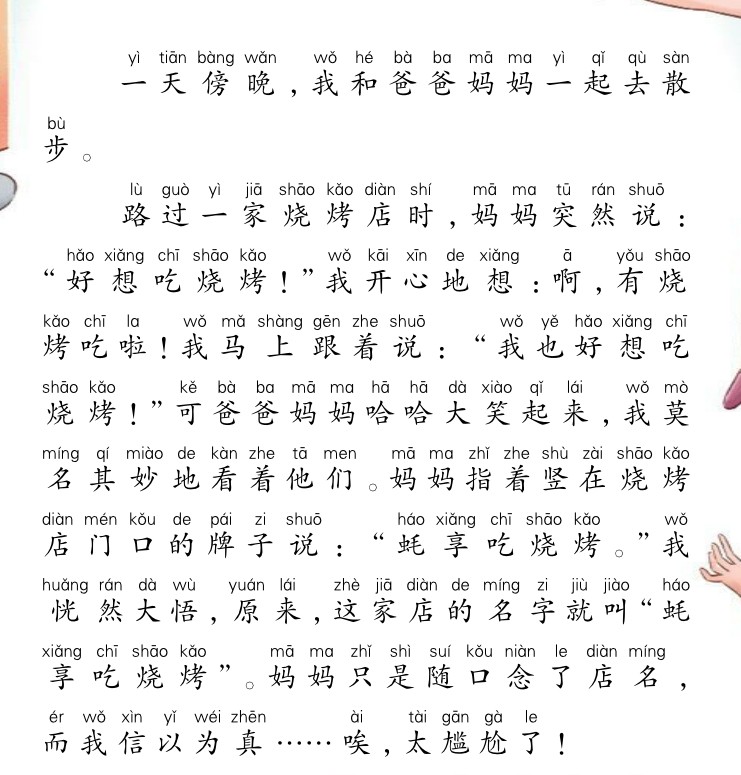 yì tiān bàng wǎn wǒ hé bà ba mā ma yì qǐ qù sàn
一天傍晚,我和爸爸妈妈一起去散
bù
步。
lù guò yì jiā shāo kǎo diàn shí mā ma tū rán shuō
路过一家烧烤店时,妈妈突然说:
hǎo xiǎng chī shāo kǎo wǒ kāi xīn de xiǎng ā yǒu shāo
“好想吃烧烤!”我开心地想:啊,有烧
kǎo chī la wǒ mǎ shàng gēn zhe shuō wǒ yě hǎo xiǎng chī
烤吃啦!我马上跟着说:“我也好想吃
shāo kǎo kě bà ba mā ma hā hā dà xiào qǐ lái wǒ mò
烧烤!”可爸爸妈妈哈哈大笑起来,我莫
míng qí miào de kàn zhe tā men mā ma zhǐ zhe shù zài shāo kǎo
名其妙地看着他们。妈妈指着竖在烧烤
diàn mén kǒu de pái zi shuō háo xiǎng chī shāo kǎo wǒ
店门口的牌子说:“蚝享吃烧烤。”我
huǎng rán dà wù yuán lái zhè jiā diàn de míng zi jiù jiào háo
恍然大悟,原来,这家店的名字就叫“蚝
xiǎng chī shāo kǎo mā ma zhǐ shì suí kǒu niàn le diàn míng
享吃烧烤”。妈妈只是随口念了店名,
ér wǒ xìn yǐ wéi zhēn ài tài gān gà le
而我信以为真……唉,太尴尬了!